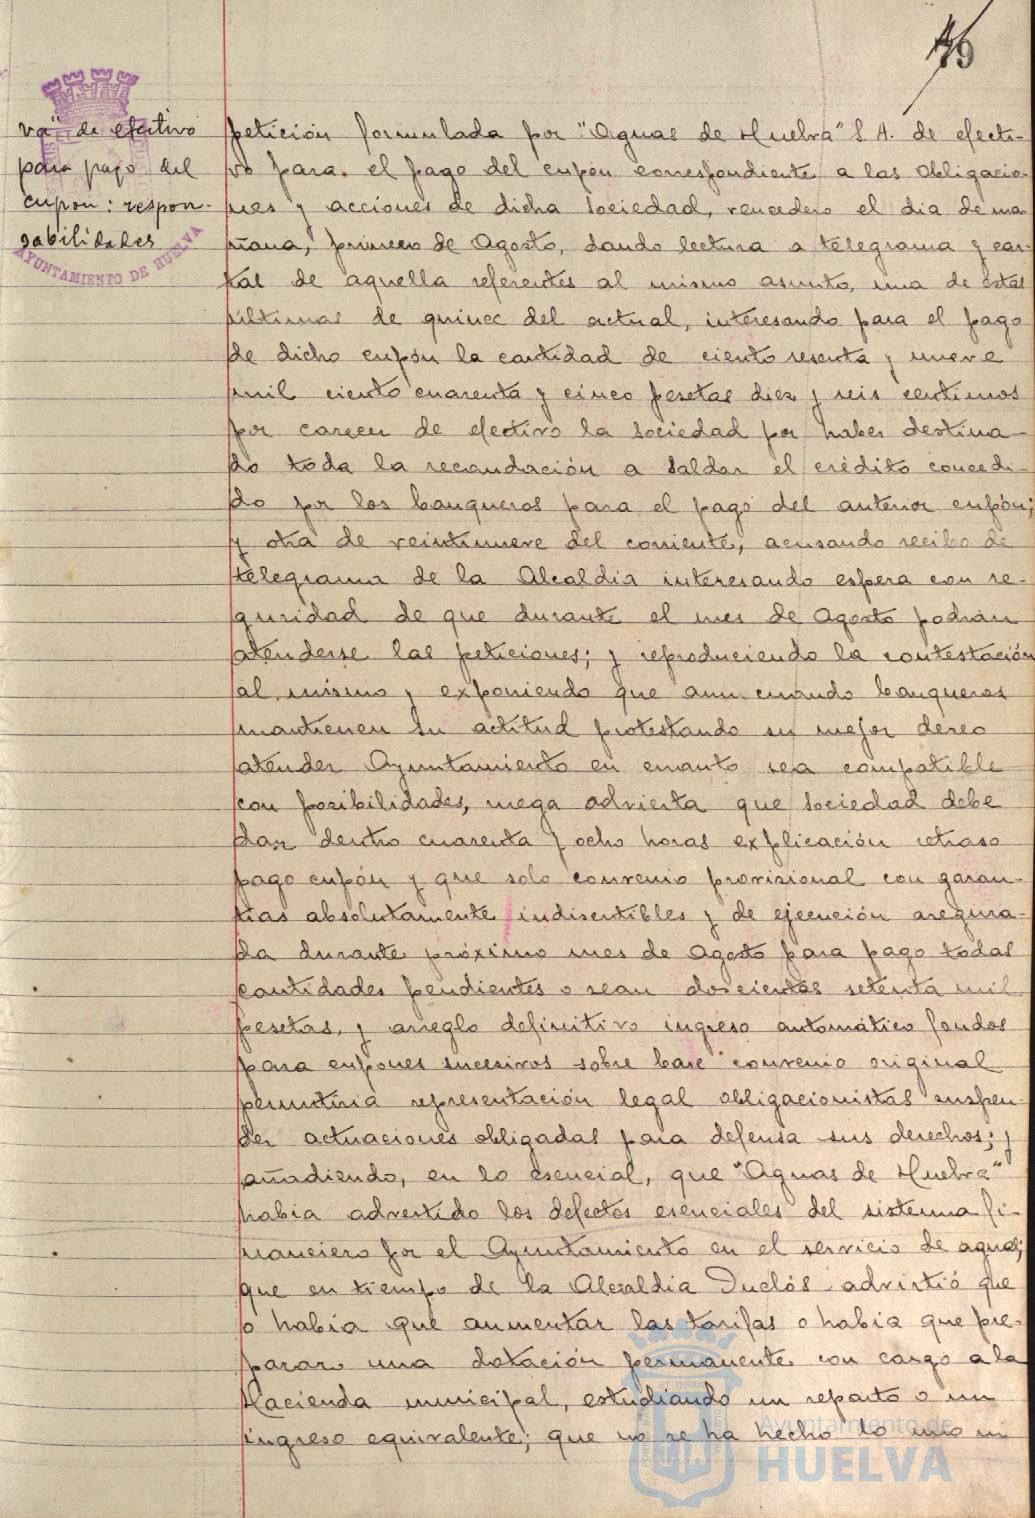 va" de efectivo
para pago del
cupon: respon-
sabilidades
AYUNTAMIENTO DE HUELVA
petición formulada por "Aguas de Huelva" S. A. de efecti-
vo para el pago del cupón correspondiente a las obligacio-
nes y acciones de dicha Sociedad, vencedero el dia de ma-
ñana, primero de Agosto, dando lectura a telegrama y car-
tas de aquella referentes al mismo asunto, una de estas
últimas de quince del actual, interesando para el pago
de dicho cupón la cantidad de ciento sesenta y nueve
mil ciento cuarenta y cinco pesetas diez y seis centimos
por carecer de efectivo la Sociedad por haber destina-
do toda la recaudación a saldar el crédito concedi-
do por los banqueros para el pago del anterior cupón;
y otra de veintinueve del corriente, acusando recibo de
telegrama de la Alcaldia interesando espera con se-
guridad de que durante el mes de Agosto podrán
atenderse las peticiones; y reproduciendo la contestación
al mismo y exponiendo que aun cuando banqueros
mantienen su actitud protestando su mejor deseo
atender Ayuntamiento en cuanto sea compatible
con posibilidades, niega advierta que Sociedad debe
dar dentro cuarenta y ocho horas explicación retraso
pago cupón y que solo convenio provisional con garan-
tias absolutamente indiscutibles y de ejecución asegura-
da durante próximo mes de Agosto para pago todas
cantidades pendientes o sean doscientas setenta mil
pesetas, y arreglo definitivo ingreso automático fondos
para cupones sucesivos sobre base convenio original
permitiria representación legal obligacionistas suspen-
der actuaciones obligadas para defensa sus derechos; y
añadiendo, en lo esencial, que "Aguas de Huelva"
habia advertido los defectos esenciales del sistema fi-
nanciero por el Ayuntamiento en el servicio de aguas;
que en tiempo de la Alcaldia Duclós advirtió que
o habia que aumentar las tarifas o habia que pre-
parar una dotación permanente con cargo a la
Hacienda municipal, estudiando un reparto o un
ingreso equivalente; que no se ha hecho lo uno ni
Ayuntamiento de
HUELVA